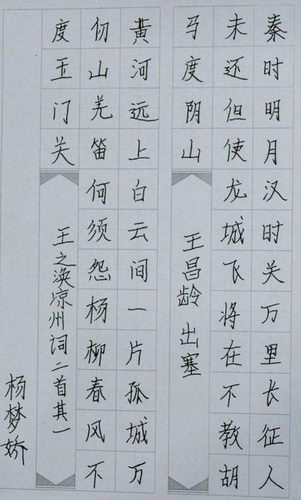 秦时明月汉时关万里长征人
未还但使龙城飞将在不教胡
马度阴山
王昌龄 出塞
黄河远上白云间一片孤城万
仞山羌笛何须怨杨柳春风不
度玉门关
王之涣凉州词二首其一
杨梦娇